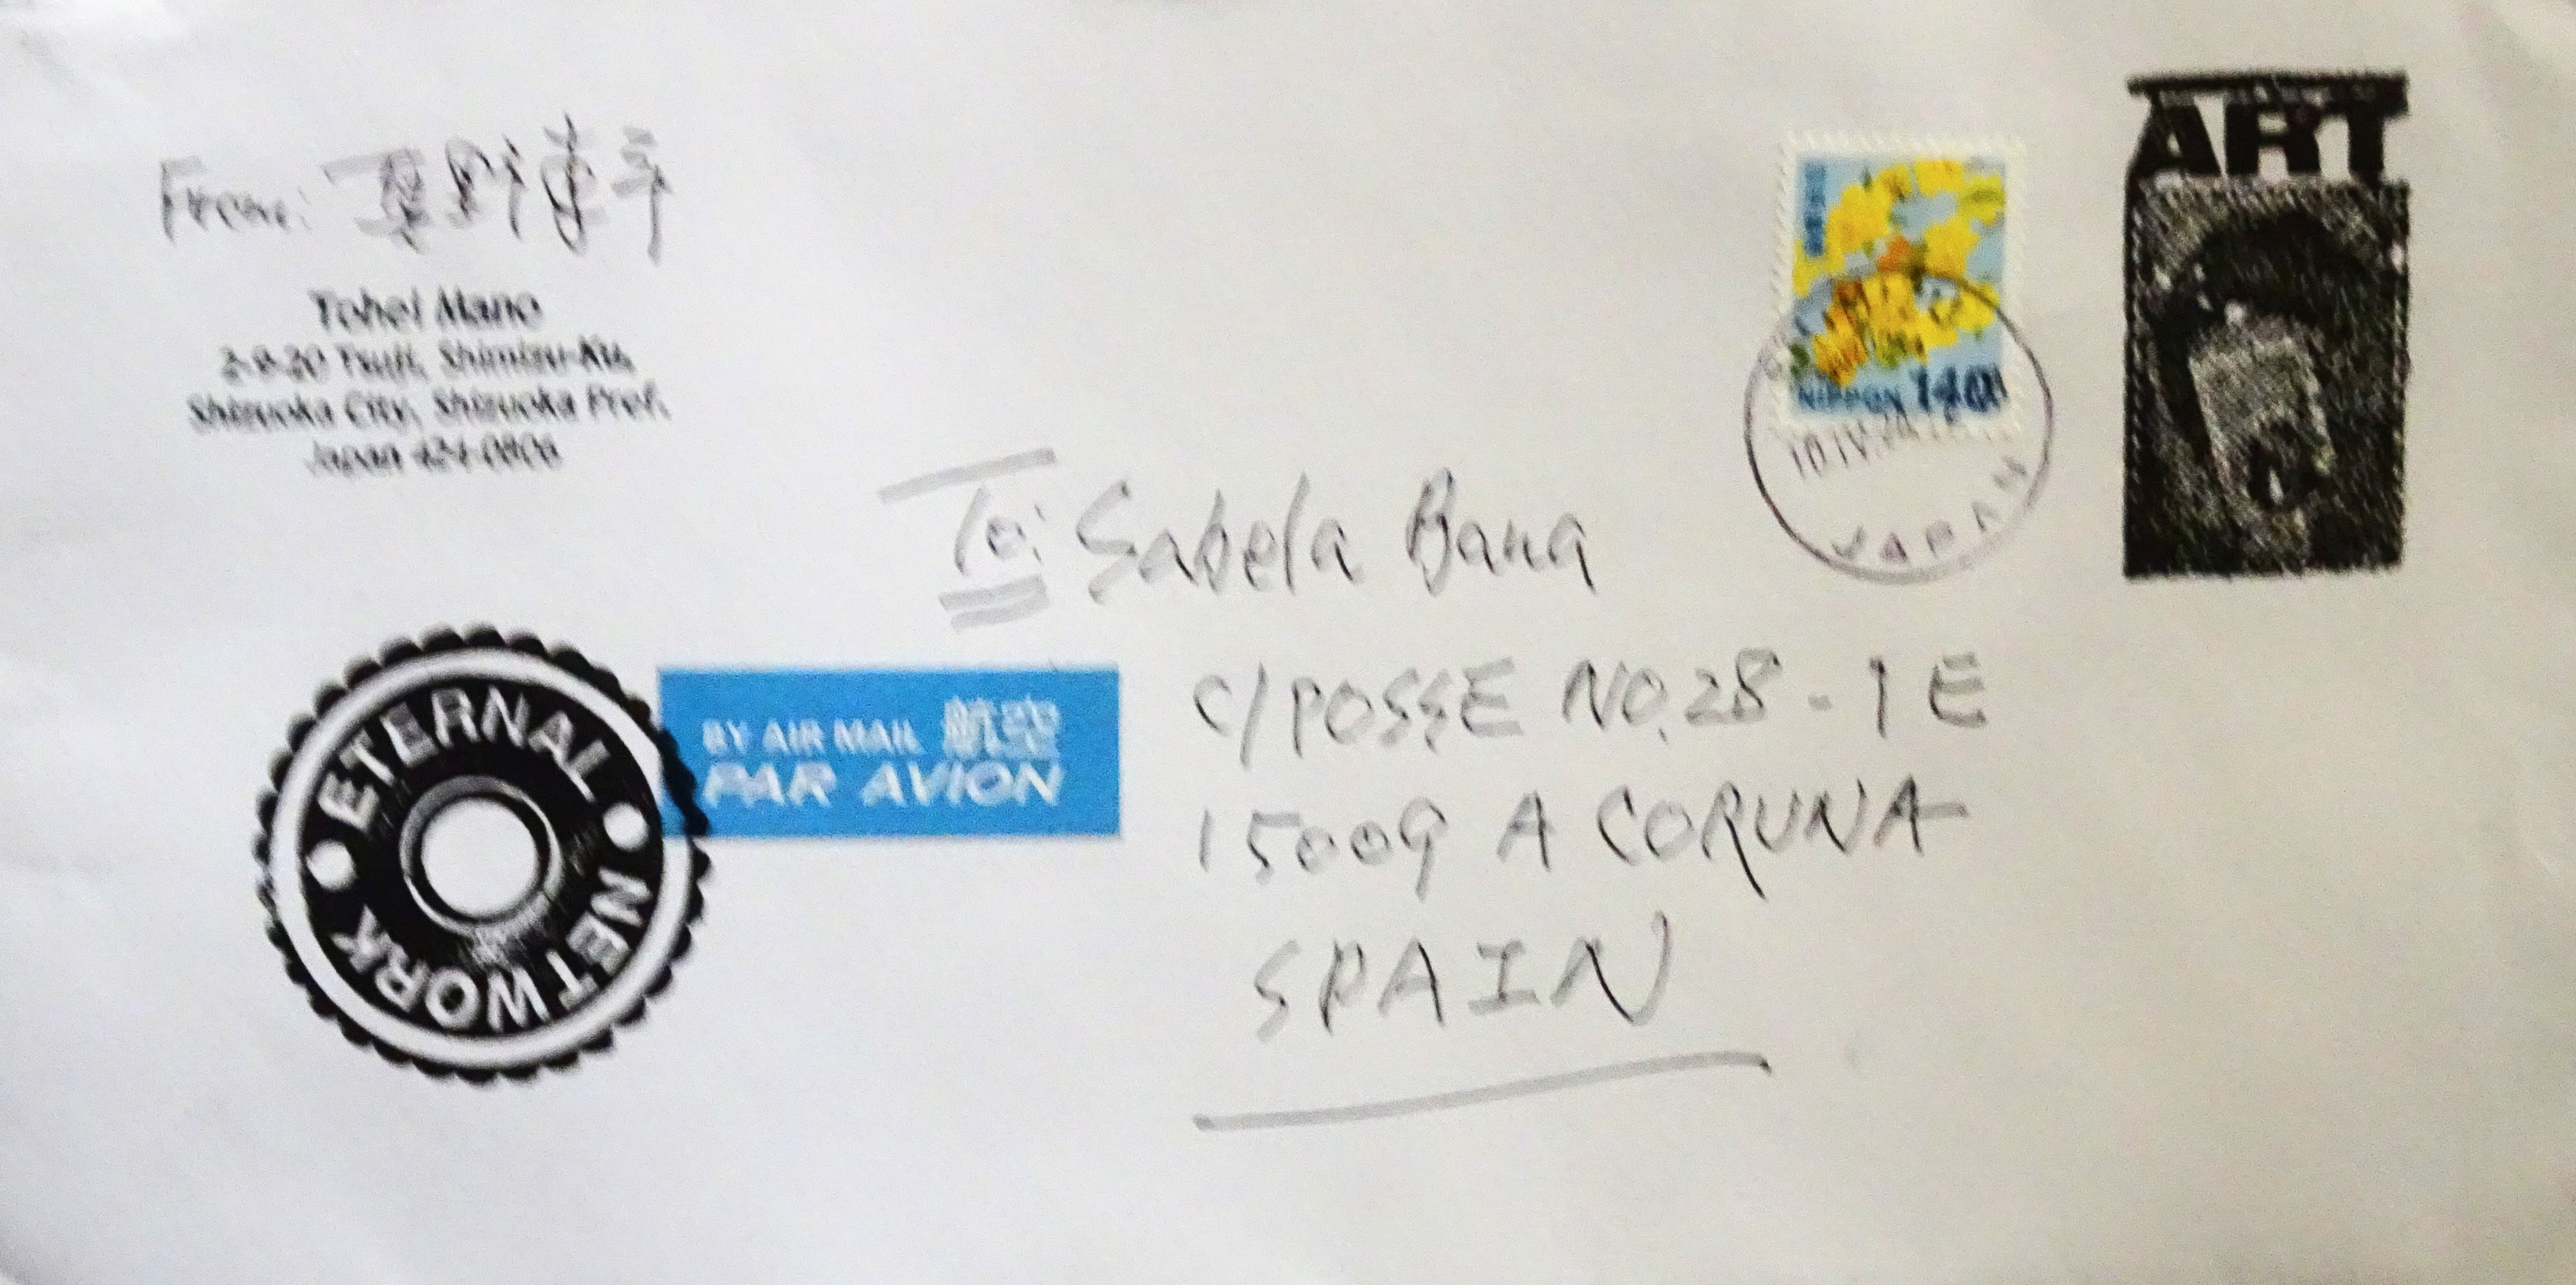 From: 真野洋平
Yohei Mano
2-9-20 Tsuji, Shimizu-Ku,
Shizuoka City, Shizuoka Pref.
Japan 424-0806
日本郵便
NIPPON 140
10.IV.24
JAPAN
ART
To: Sabela Bana
C/POSSE NO.28-1E
15009 A CORUNA
SPAIN
BY AIR MAIL 航空
PAR AVION
ETERNAL
NETWORK